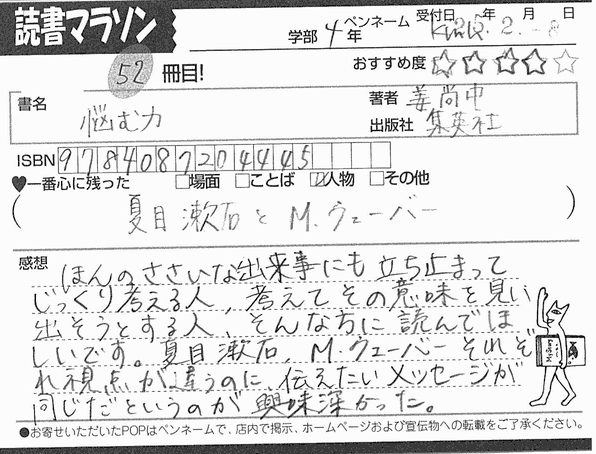 読書マラソン
学部 4年 ペンネーム 受付日 年 月 日
2. - 8
52 冊目!
おすすめ度 ★★★★☆
書名 悩む力
著者 姜尚中
出版社 集英社
ISBN 9784087204445
♥一番心に残った □場面 □ことば ☑人物 □その他
( 夏目漱石とM.ウェーバー )
感想
ほんのささいな出来事にも立ち止まって
じっくり考える人、考えてその意味を見い
出そうとする人、そんな方に読んでほ
しいです。夏目漱石、M.ウェーバーそれぞ
れ視点が違うのに、伝えたいメッセージが
同じだというのが興味深かった。
●お寄せいただいたPOPはペンネームで、店内で掲示、ホームページおよび宣伝物への転載をご了承ください。